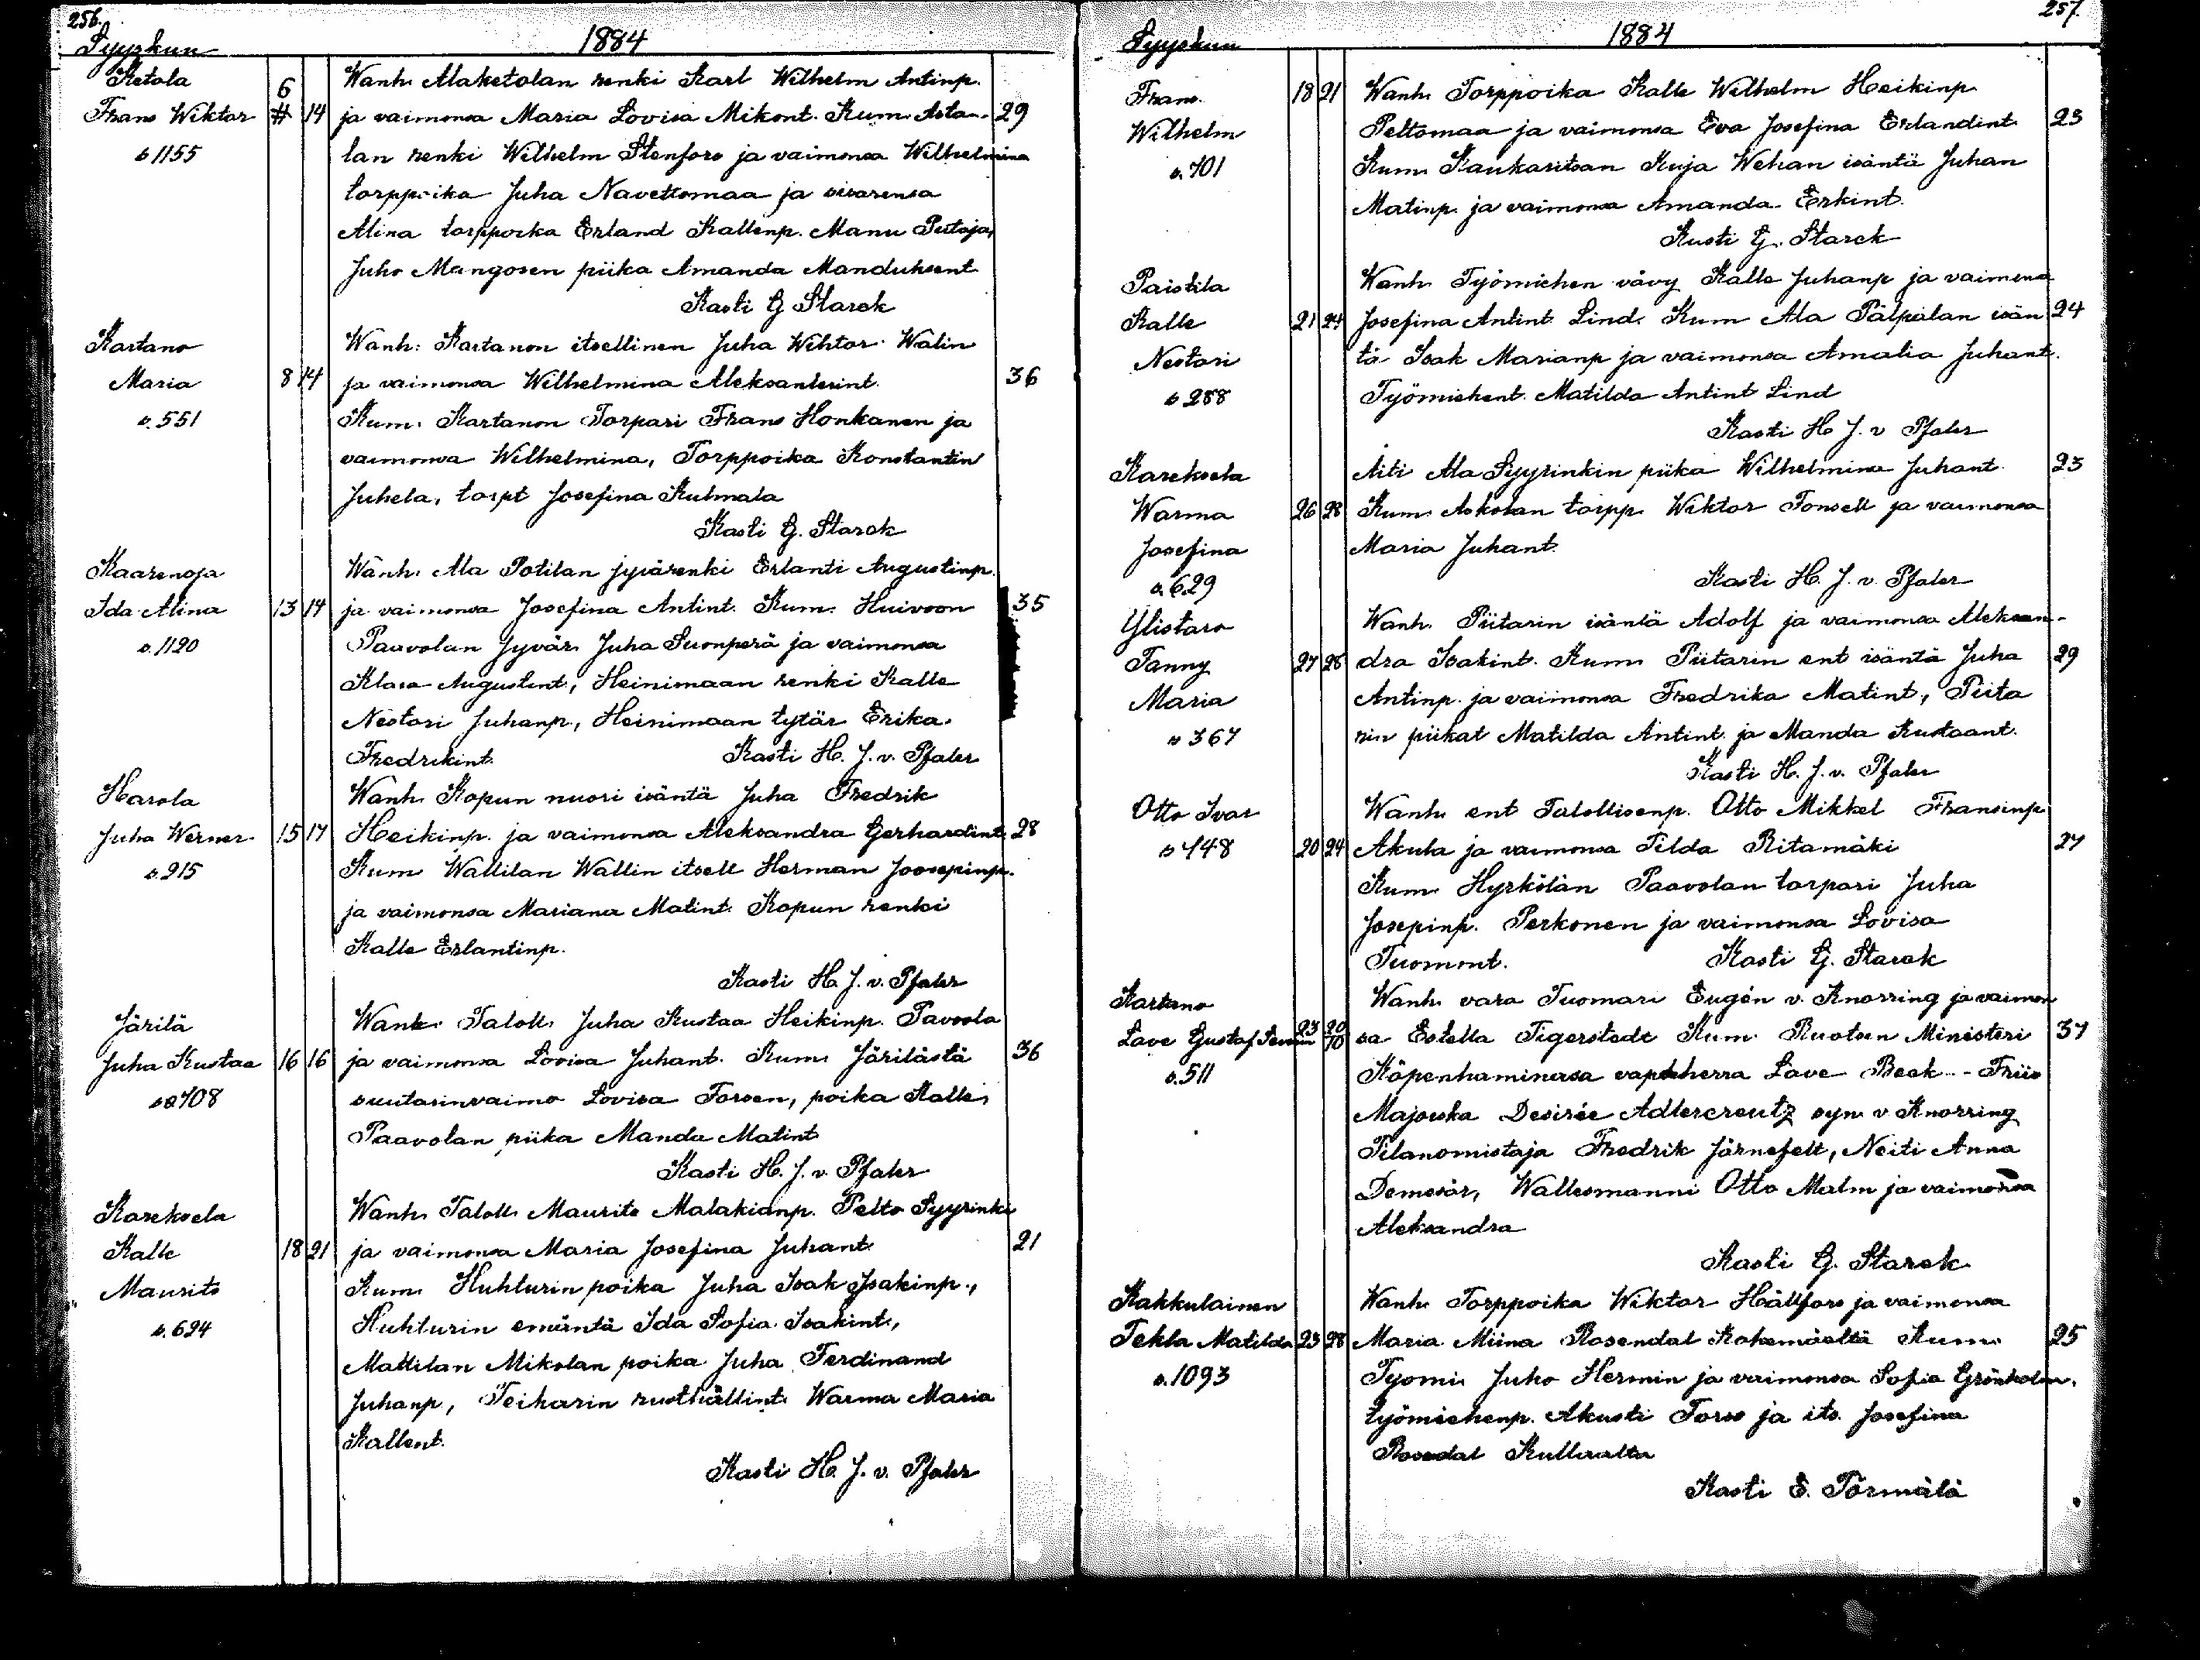 256.
Syyskun 1884
Ketola Wanh. Alaketolan renki Karl Wilhelm Antinp.
Frans Wiktor 6 # 14 ja vaimonsa Maria Lovisa Mikont. Kum. Asta- 29
s 1155 lan renki Wilhelm Stenfors ja vaimonsa Wilhelmina
torppoika Juha Navettomaa ja sisarensa
Alina torppoika Erland Kallenp. Manu
Juho Mangosen piika Amanda Manduksent
Kasti G Starck
Kartano Wanh: Kartanon itsellinen Juha Wihtor Walin
Maria 8 14 ja vaimonsa Wilhelmina Aleksanterint. 36
s. 551 Kum. Kartanon Torpari Frans Honkanen ja
vaimonsa Wilhelmina, Torppoika Konstantin
Juhela, torpt Josefina Kulmala
Kasti G. Starck
Kaarenoja Wanh. Ala Potilan jyvärenki Erlanti Augustinp.
Ida Alina 13 14 ja vaimonsa Josefina Antint. Kum. Huivoon 35
s. 1120 Paavolan jyvär. Juha Suonperä ja vaimonsa
Klara Augustint, Heinimaan renki Kalle
Nestori Juhanp, Heinimaan tytär Erika
Fredrikint. Kasti H. J. v. Pfaler
Harola Wanh. Kopun nuori isäntä Juha Fredrik
Juha Werner 15 17 Heikinp. ja vaimonsa Aleksandra Gerhardint. 28
s. 915 Kum Wallilan Wallin itsell Herman Joosepinp.
ja vaimonsa Mariana Matint. Kopun renki
Kalle Erlantinp.
Kasti H. J. v. Pfaler
Järilä Wanh. Taloll. Juha Kustaa Heikinp. Pavoola
Juha Kustaa 16 16 ja vaimonsa Lovisa Juhant. Kum. Järilästä 36
s 708 suutarinvaimo Lovisa Forsen, poika Kalle,
Paavolan piika Manda Matint
Kasti H. J. v. Pfaler
Kareksela Wanh. Taloll. Maurits Malakianp. Pelto Syyrinki
Kalle 18 21 ja vaimonsa Maria Josefina Juhant 21
Maurits Kum. Huhturin poika Juha Isak Isakinp.,
s. 694 Huhturin emäntä Ida Sofia Isakint,
Mattilan Mikolan poika Juha Ferdinand
Juhanp, Teikarin rusthällint. Warma Maria
Kallent.
Kasti H. J. v. Pfaler
257.
Syyskun 1884
Frans 18 21 Wanh. Torppoika Kalle Wilhelm Heikinp
Wilhelm Peltomaa ja vaimonsa Eva Josefina Erlandint 23
s. 701 Kum. Kaukaritsan Kuja Wehan isäntä Juhan
Matinp. ja vaimonsa Amanda Erkint.
Kasti G. Starck
Paistila Wanh. Työmiehen vävy Kalle Juhanp ja vaimonsa
Kalle 21 24 Josefina Antint Lind. Kum Ala Pälpälan isän 24
Nestori tä Isak Marianp ja vaimonsa Amalia Juhant.
s 288 Työmiehent. Matilda Antint Lind
Kasti H J. v Pfaler
Kareksela Äiti Ala Syyrinkin piika Wilhelmina Juhant 23
Warma 26 28 Kum. Askolan torpp. Wiktor Fonsell ja vaimonsa
Josefina Maria Juhant.
s. 629 Kasti H. J. v. Pfaler
Ylistaro Wanh. Piitarin isäntä Adolf ja vaimonsa Aleksan-
Fanny 27 28 dra Isakint. Kum. Piitarin ent isäntä Juha 29
Maria Antinp. ja vaimonsa Fredrika Matint, Piita
s 367 rin piikat Matilda Antint. ja Manda Kustaant.
Kasti H. J. v. Pfaler
Otto Ivar Wanh. ent Talollisenp. Otto Mikkel Fransinp
s 448 20 24 Akula ja vaimonsa Tilda Ritamäki 27
Kum. Hyrkölän Paavolan torpari Juha
Josepinp. Perkonen ja vaimonsa Lovisa
Tuomont. Kasti G. Starck
Kartano Wanh. vara Tuomari Eugén v. Knorring ja vaimon
Lave Gustaf 23 20/10 sa Estella Tigerstedt Kum. Ruotsin Ministeri 37
s. 511 Köpenhaminassa vapaherra Lave Beck-Friis
Majorska Desirée Adlercreutz syn. v Knorring
Tilanomistaja Fredrik Järnefelt, Neiti Anna
Demosär, Wallesmanni Otto Malm ja vaimonsa
Aleksandra
Kasti G. Starck
Kakkulainen Wanh. Torppoika Wiktor Hällfors ja vaimonsa
Tekla Matilda 23 28 Maria Miina Rosendal Kokemäeltä Kum. 25
s. 1093 Tyomi. Juho Hermin ja vaimonsa Sofia Grönholm,
työmiehenp. Akusti Forss ja its. Josefina
Rosedal Kullaalta
Kasti E. Törmälä